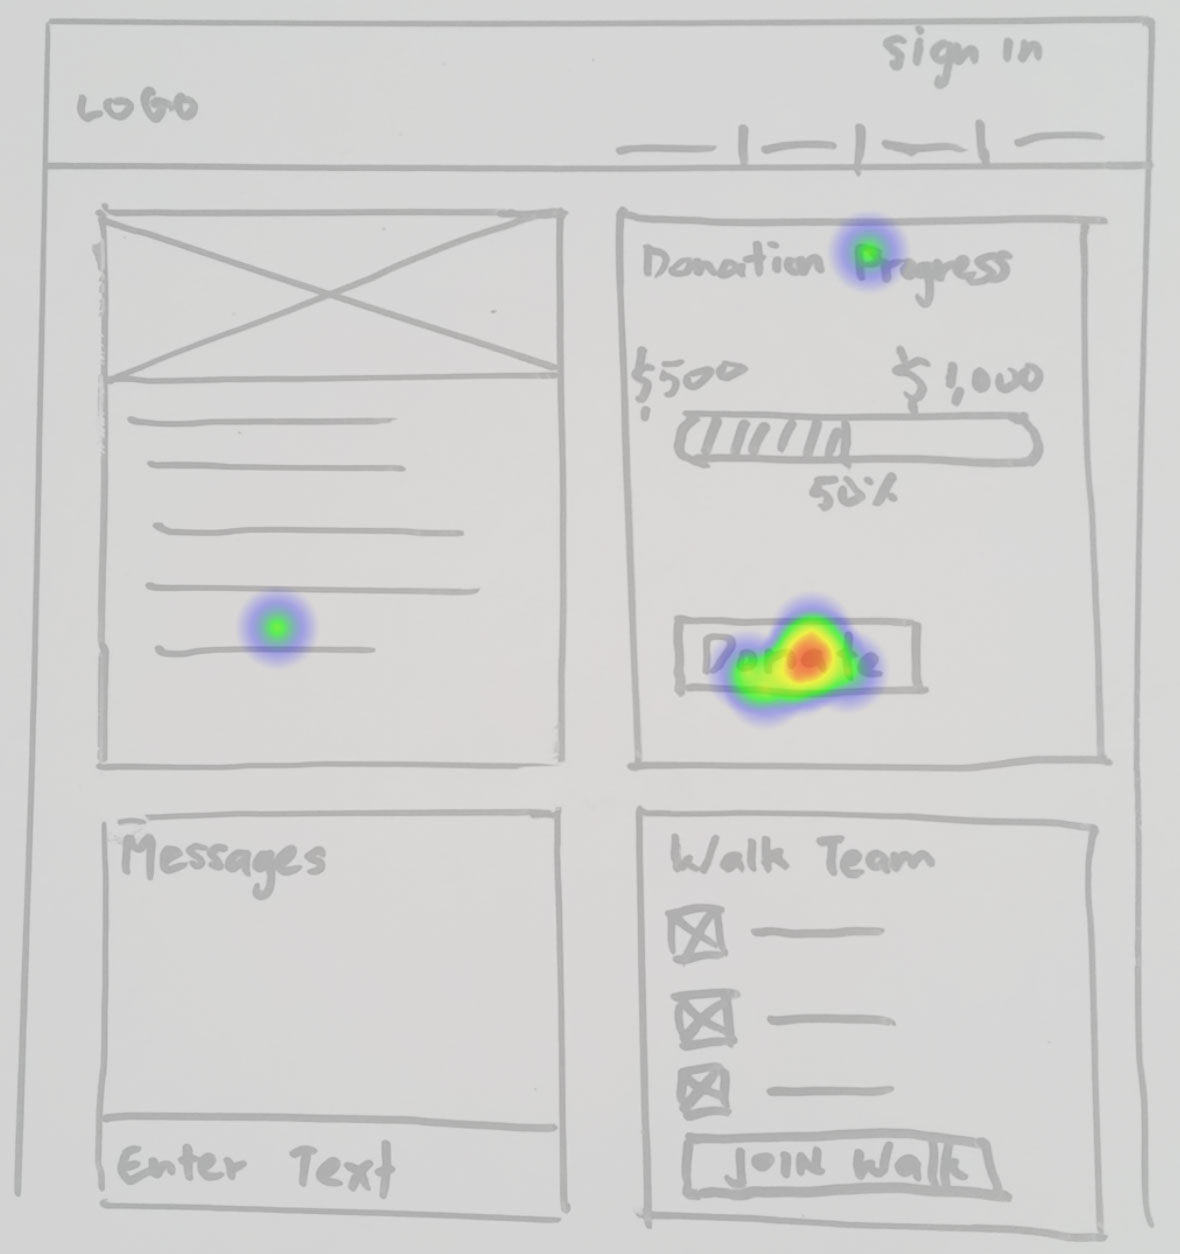 Sign in
LOGO
Donation Progress
$500
$1,000
50%
Donate
Messages
Walk Team
Enter Text
JOIN Walk